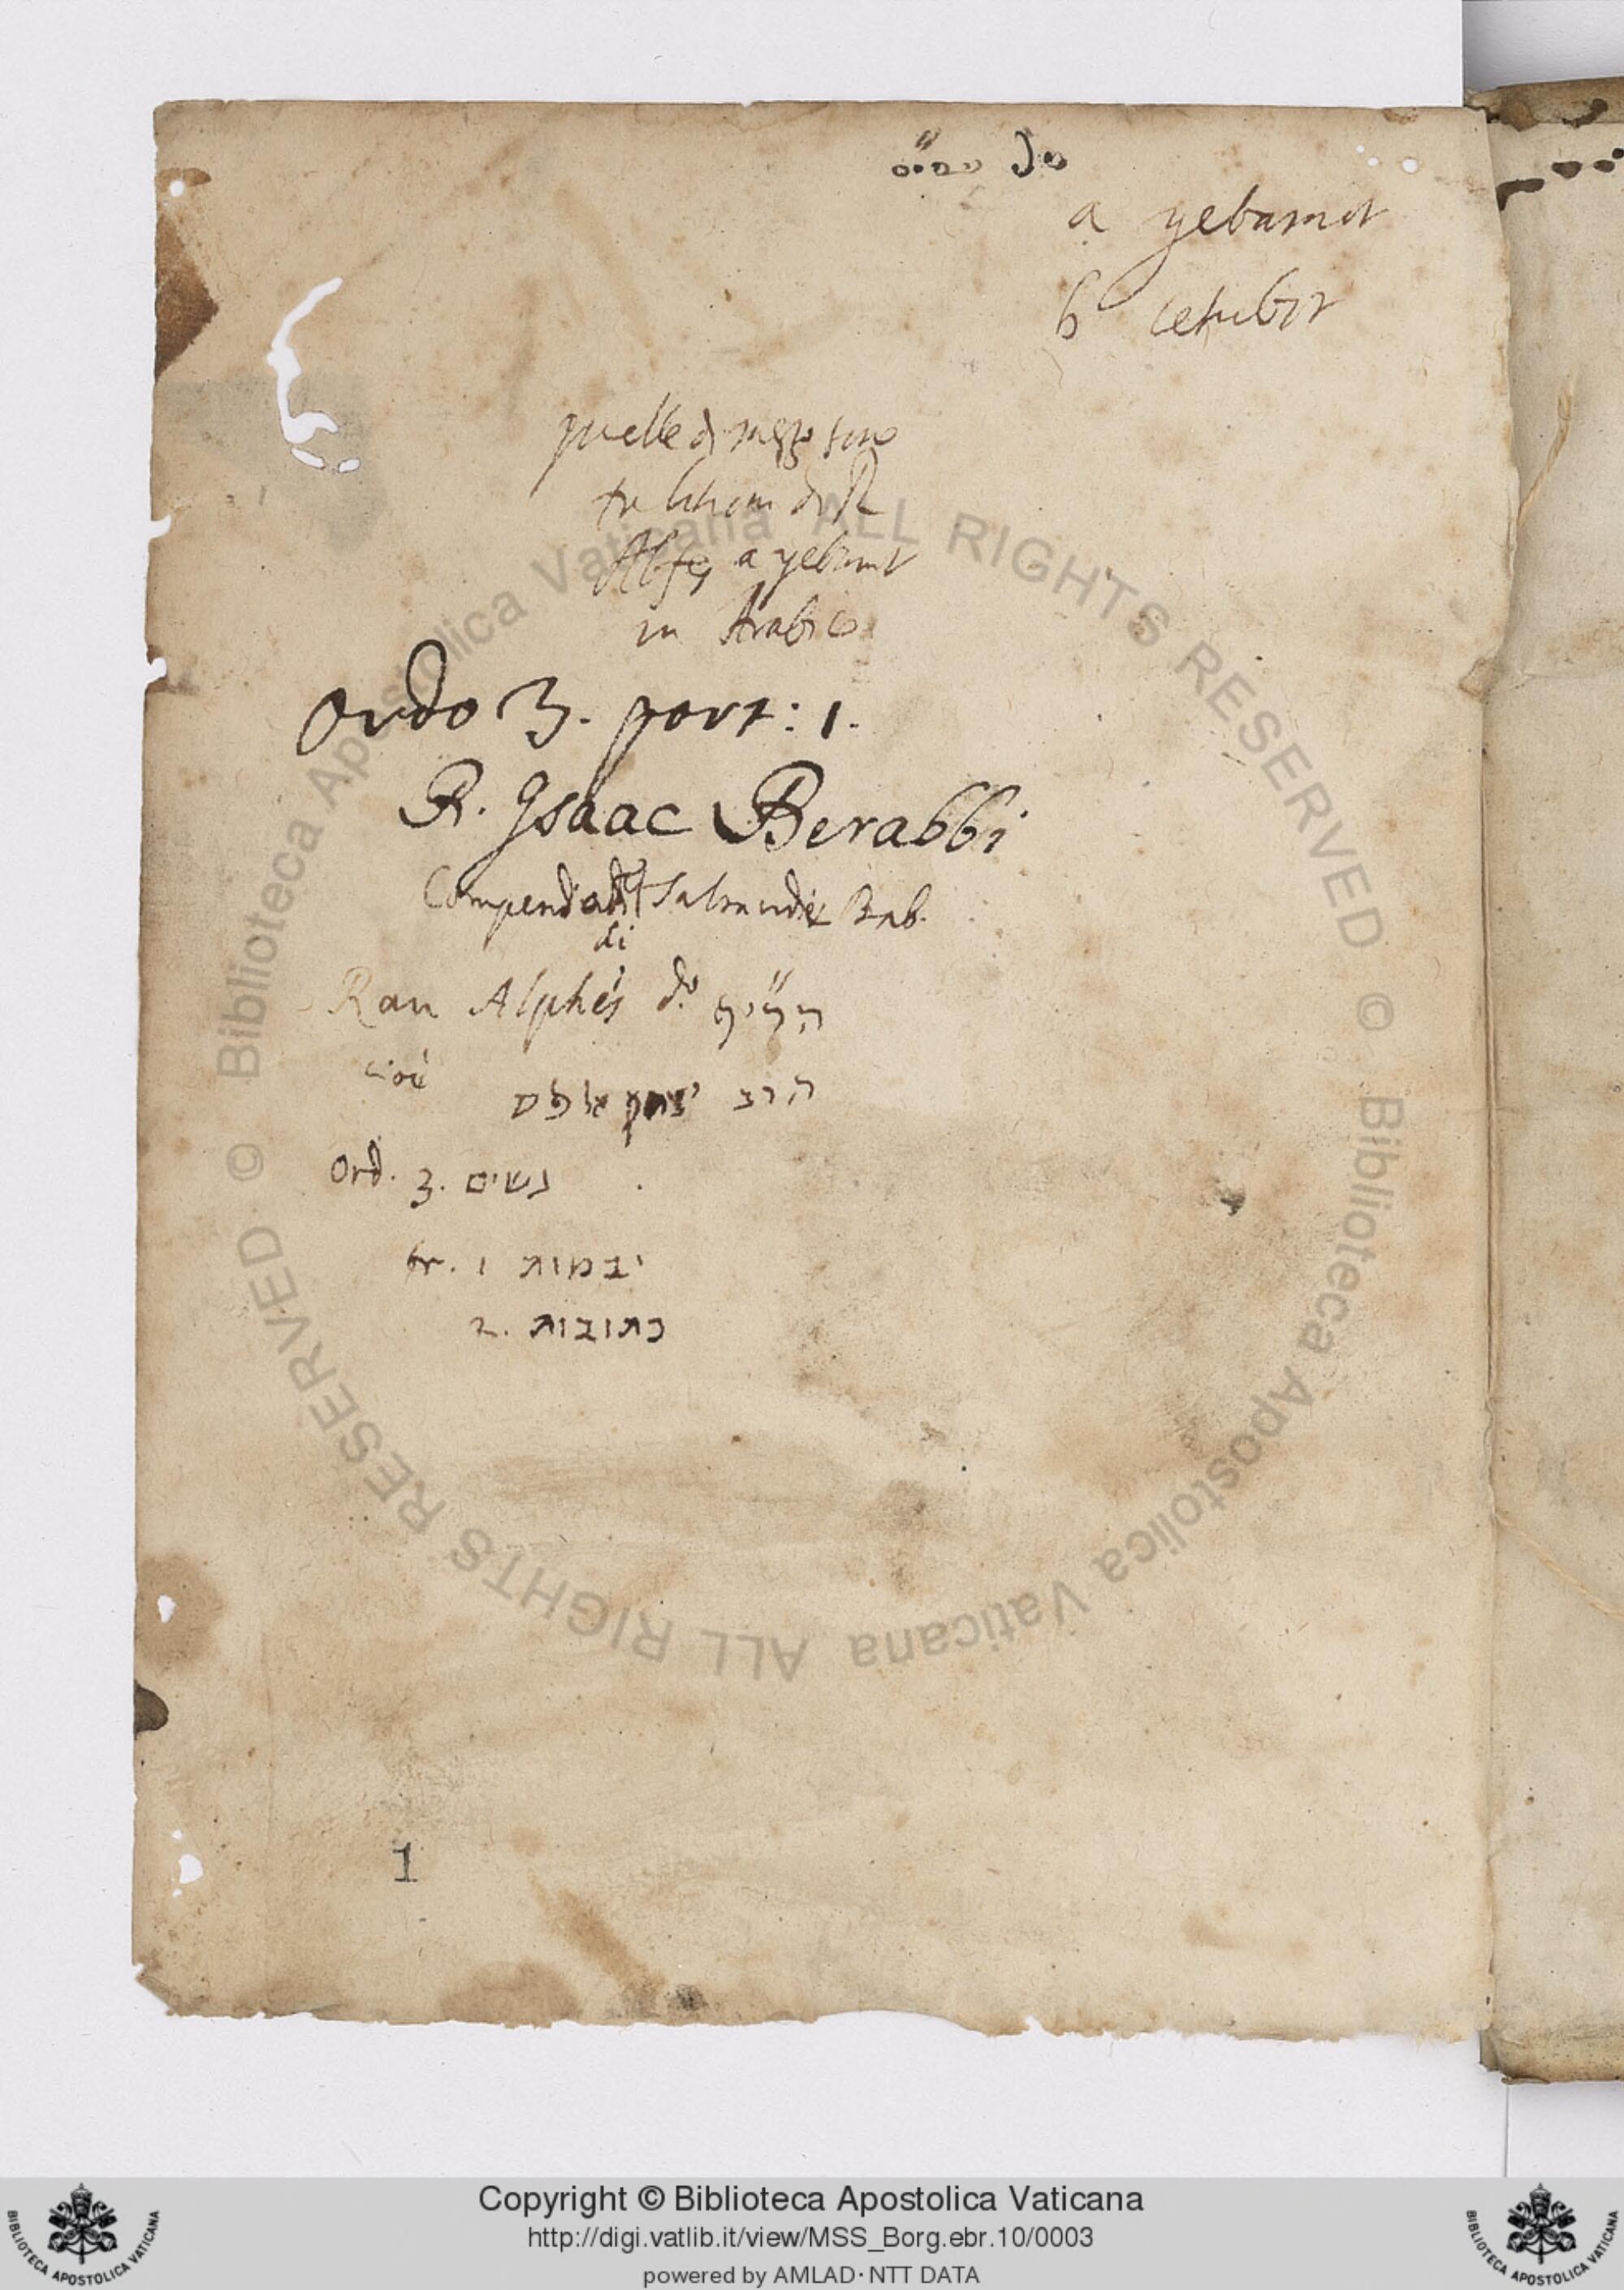 a yebamot
b cetubot
quelle di mezo sono
di R
Alfes a yebamot
in Arabico
Ordo 3. part: 1.
R. Isaac Berabbi
Talmudi Bab.
di
Rau Alphes d.o הרי״ף
cioè הרב יצחק אלפס
Ord. 3. נשים
tr. 1 יבמות
2. כתובות
1
© Biblioteca Apostolica Vaticana ALL RIGHTS RESERVED © Biblioteca Apostolica Vaticana ALL RIGHTS RESERVED
Copyright © Biblioteca Apostolica Vaticana
http://digi.vatlib.it/view/MSS_Borg.ebr.10/0003
powered by AMLAD·NTT DATA
BIBLIOTECA APOSTOLICA VATICANA
BIBLIOTECA APOSTOLICA VATICANA